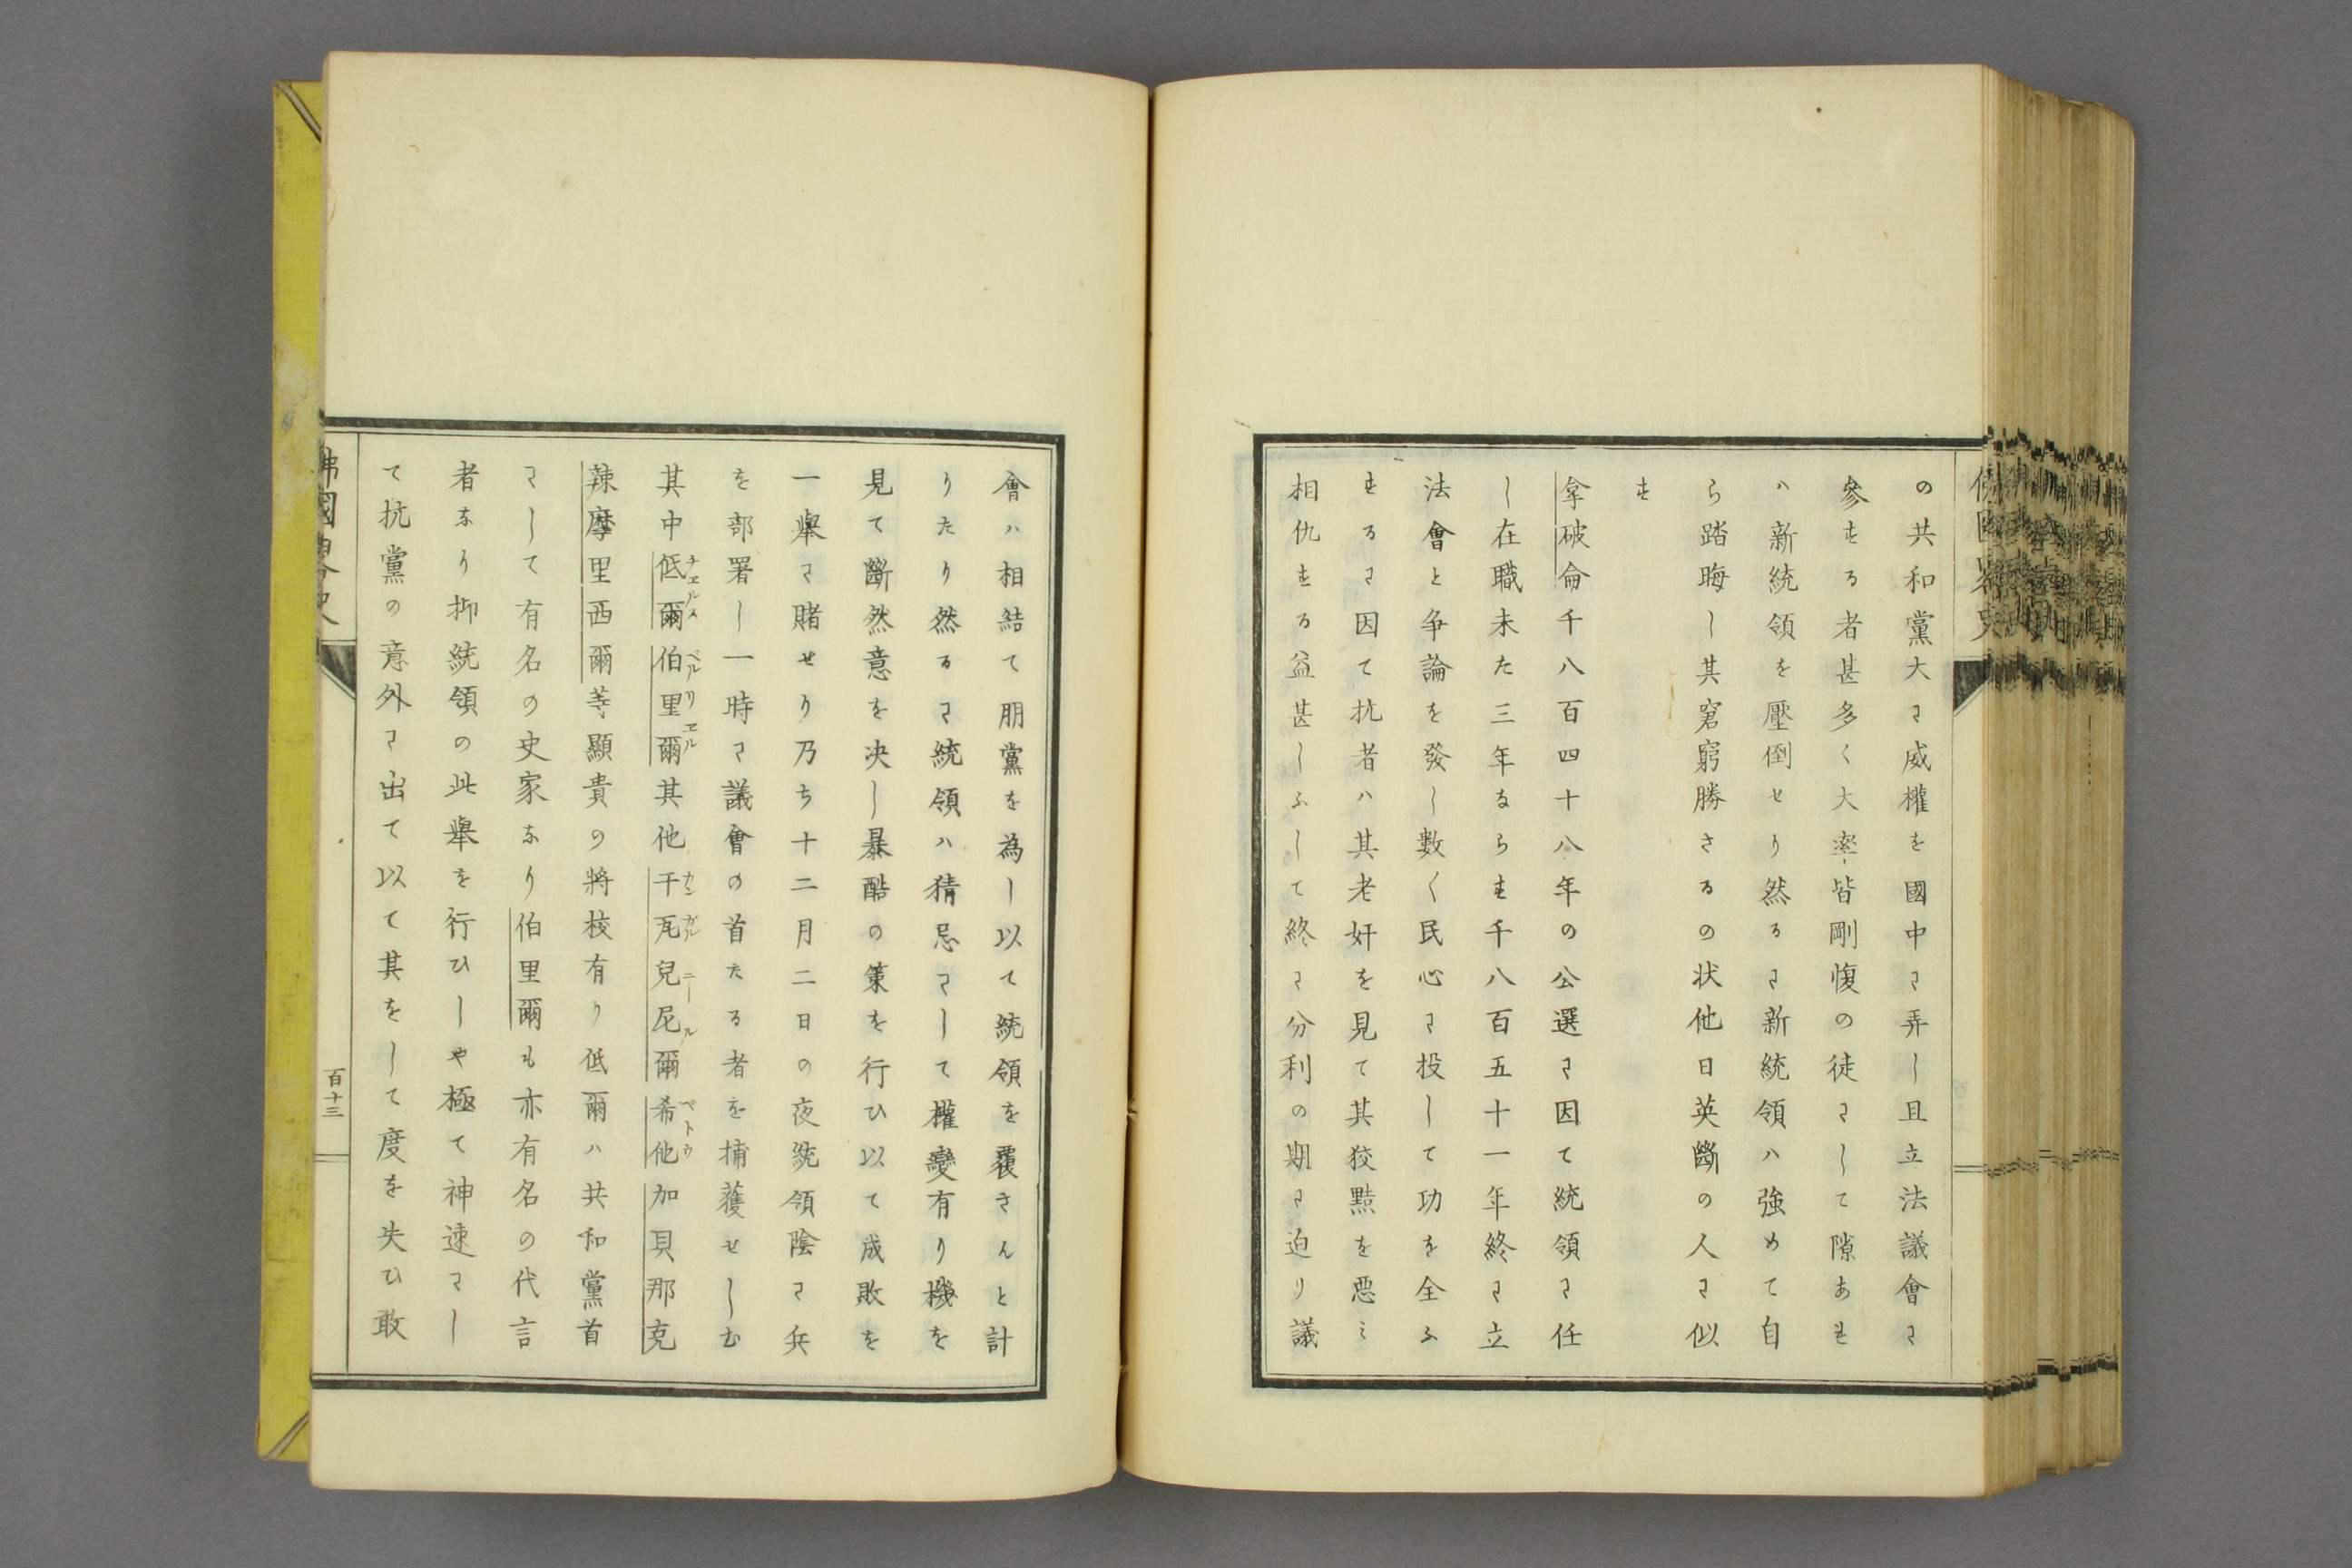 の共和黨大に威權を國中に弄し且立法議會に
參する者甚多く大率皆剛愎の徒にして隙あれ
ハ新統領を壓倒せり然るに新統領ハ強めて自
ら踏晦し其窘窮勝さるの状他日英斷の人に似
す
拿破侖千八百四十八年の公選に因て統領に任
し在職未た三年ならす千八百五十一年終に立
法會と争論を發し數〱民心に投して功を全ふ
するに因て抗者ハ其老奸を見て其狡黠を惡ミ
相仇する益甚しふして終に分利の期に迫り議
會ハ相結て朋黨を為し以て統領を覆さんと計
りたり然るに統領ハ猜忌にして權變有り機を
見て斷然意を决し暴酷の策を行ひ以て成敗を
一擧に賭せり乃ち十二月二日の夜統領陰に兵
を部署し一時に議會の首たる者を捕獲せしむ
其中低爾チエルス伯里爾ベルリエル其他干瓦兒尼爾カンガルニール希他ベトウ加貝那克
辣摩里西爾等顯貴の將校有り低爾ハ共和黨首
にして有名の史家なり伯里爾も亦有名の代言
者なり抑統領の此擧を行ひしや極て神速にし
て抗黨の意外に出て以て其をして度を失ひ敢
佛國畧史
百十三